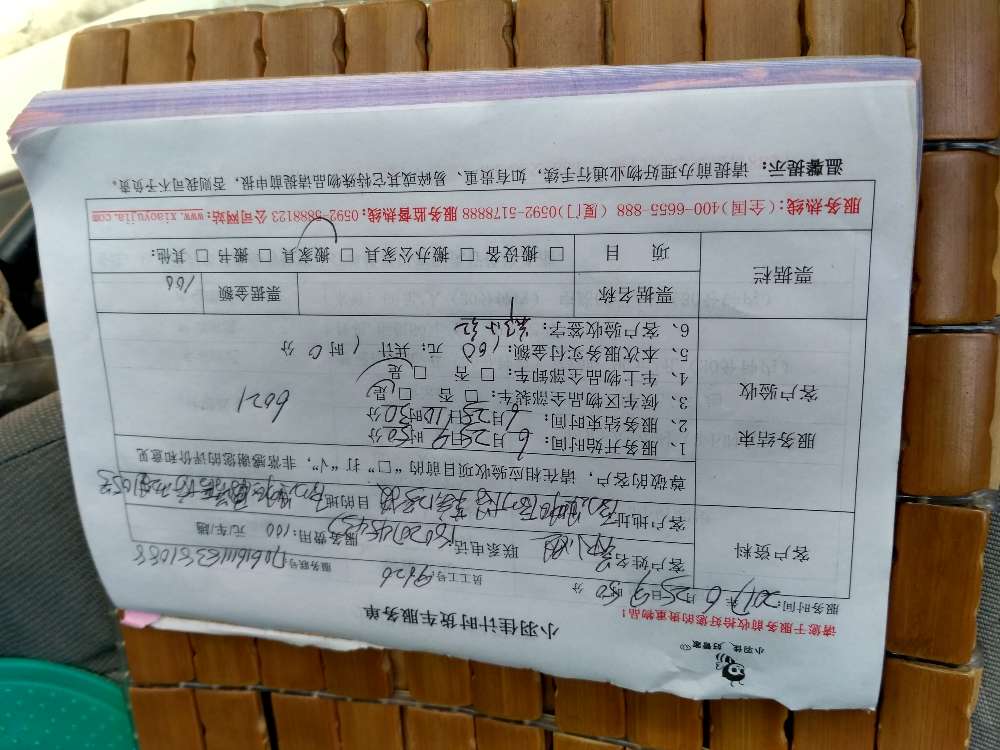 小羽佳，好管家
小羽佳计时货车服务单
请您于服务前收拾好您的贵重物品！
服务时间：2017年6月25日9时50分 员工工号 服务联号
客户资料
客户姓名 联系电话 服务费用：100 元/车/趟
客户地址 目的地
尊敬的客户，请在相应验收项目前的“□”打“√”，非常感谢您的评价和意见
服务结束
客户验收
1、服务开始时间：6月25日9时50分
2、服务结束时间：6月25日10时50分
3、候车区物品全部装车：□ 是 □ 否
4、车上物品全部卸车：□ 是 □ 否
6021
5、本次服务实付金额：（60）元；共计（ 时0分
6、客户验收签字：
票据栏
票据名称 票据金额 100
项 目 □ 搬设备 □ 搬办公家具 □ 搬家具 □ 搬书 □ 其他：
服务热线：(全国)400-6655-888 (厦门)0592-5178888 服务监督热线：0592-5888123 公司网站：www.xiaoyujia.com
温馨提示：请提前办理好物业通行手续，如有贵重、易碎或其它特殊物品请提前申报，否则我司不予负责。